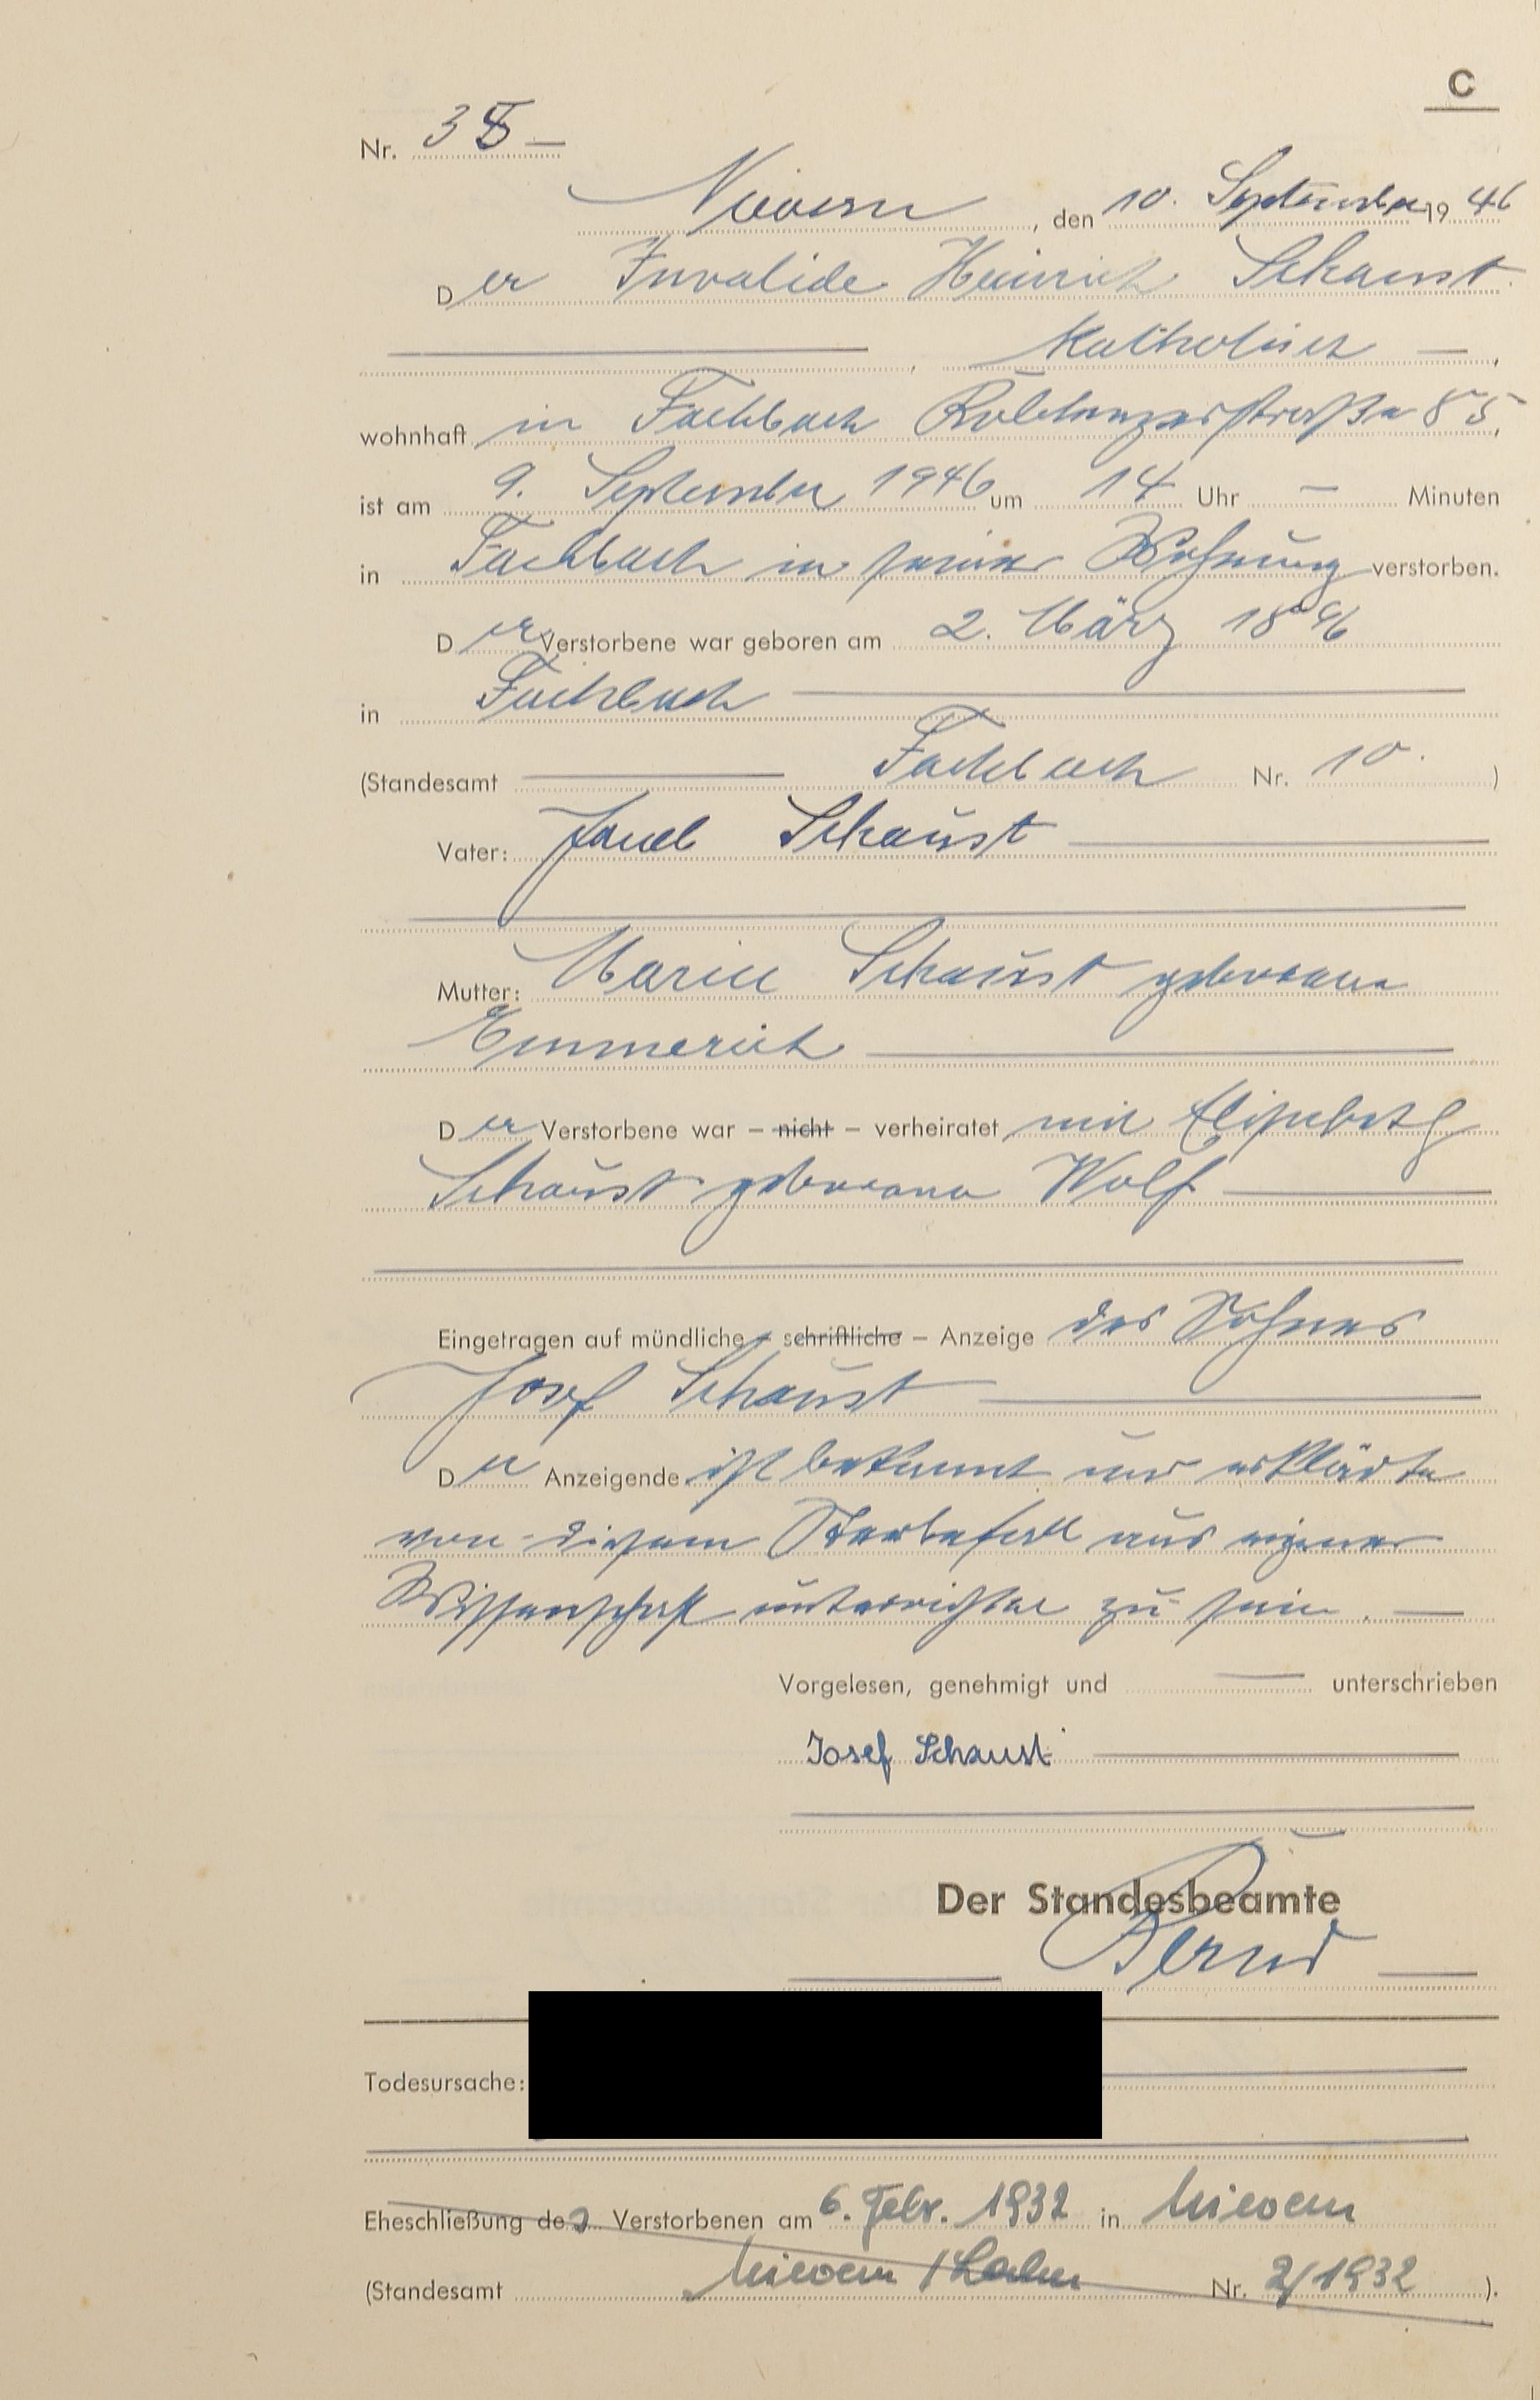 C
Nr. 35 —
Nievern, den 10. September 1946
Der Invalide Heinrich Schaust
—, katholisch —,
wohnhaft in Fachbach Koblenzerstraße 85,
ist am 9. September 1946 um 14 Uhr — Minuten
in Fachbach in seiner Wohnung verstorben.
Der Verstorbene war geboren am 2. März 1896
in Fachbach —
(Standesamt — Fachbach Nr. 10.)
Vater: Jacob Schaust —
Mutter: Marie Schaust geborene
Emmerich —
Der Verstorbene war – nicht – verheiratet mit Elisabeth
Schaust geborene Wolf —
Eingetragen auf mündliche – schriftliche – Anzeige des Sohnes
Josef Schaust —
Der Anzeigende ist bekannt und erklärte
von diesem Sterbefall aus eigener
Wissenschaft unterrichtet zu sein. —
Vorgelesen, genehmigt und — unterschrieben
Josef Schaust —
Der Standesbeamte
Todesursache:
Eheschließung des Verstorbenen am 6. Febr. 1932 in Nievern
(Standesamt Nievern / Lahn Nr. 2/1932).